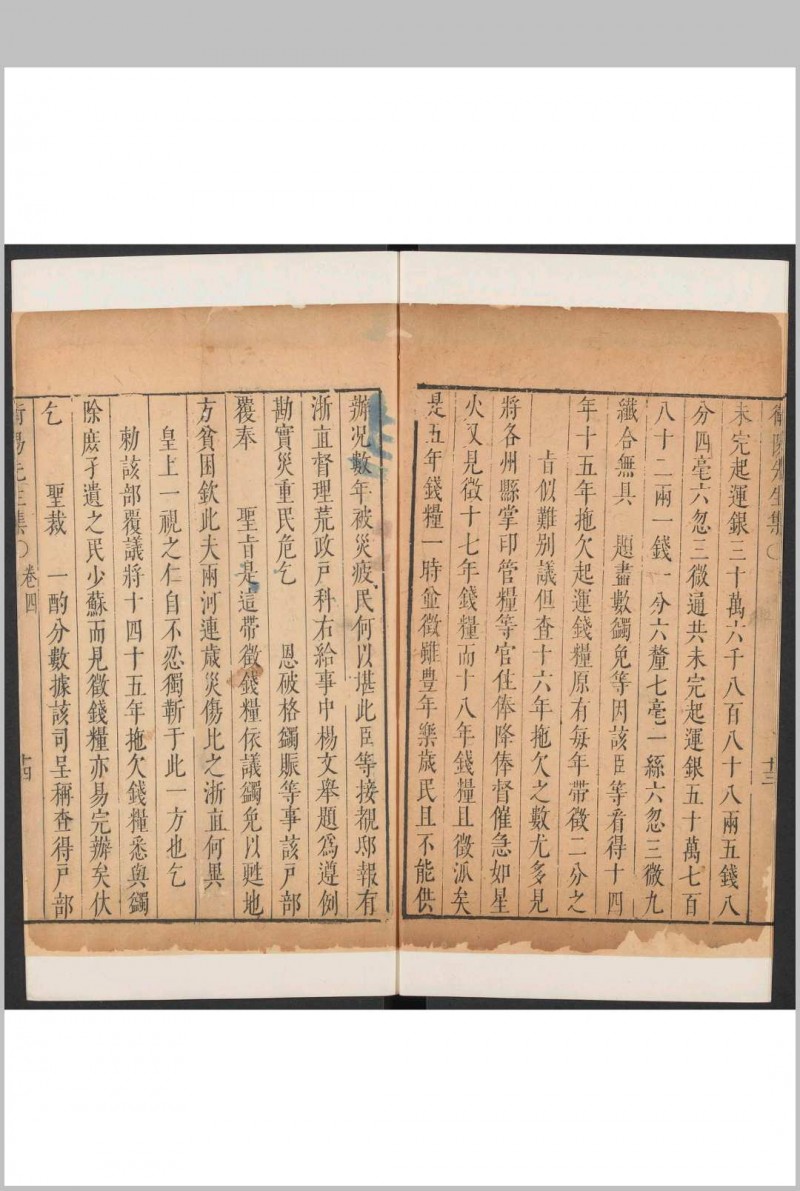 未完起運銀三十萬六千八百八十八兩五錢八
分四毫六忽三微通共未完起運銀五十萬七百
八十二兩一錢一分六釐七毫一絲六忽三微九
纖合無具　題盡數蠲免等因該臣等看得十四
年十五年拖欠起運錢糧原有每年帶徵二分之
旨似難別議但查十六年拖欠之數尤多見
將各州縣掌印管糧等官住俸降俸督催急如星
火又見徵十七年錢糧而十八年錢糧且徵派矣
是五年錢糧一時並徵雖豊年樂歲民且不能供
辦況數年被災疲民何以堪此臣等接覩邸報有
浙直督理荒政戶科右給事中楊文舉題為遵例
勘實災重民危乞　恩破格蠲賑等事該戶部
覆奉　聖旨是這帶徵錢糧依議蠲免以甦地
方貧困欽此夫兩河連歲災傷比之浙直何異
皇上一視之仁自不忍獨靳于此一方也乞
勅該部覆議將十四十五年拖欠錢糧悉與蠲
除庶孑遺之民少蘇而見徵錢糧亦易完辦矣伏
乞　聖裁　一酌分數據該司呈稱查得戶部
先生集　卷四　十四